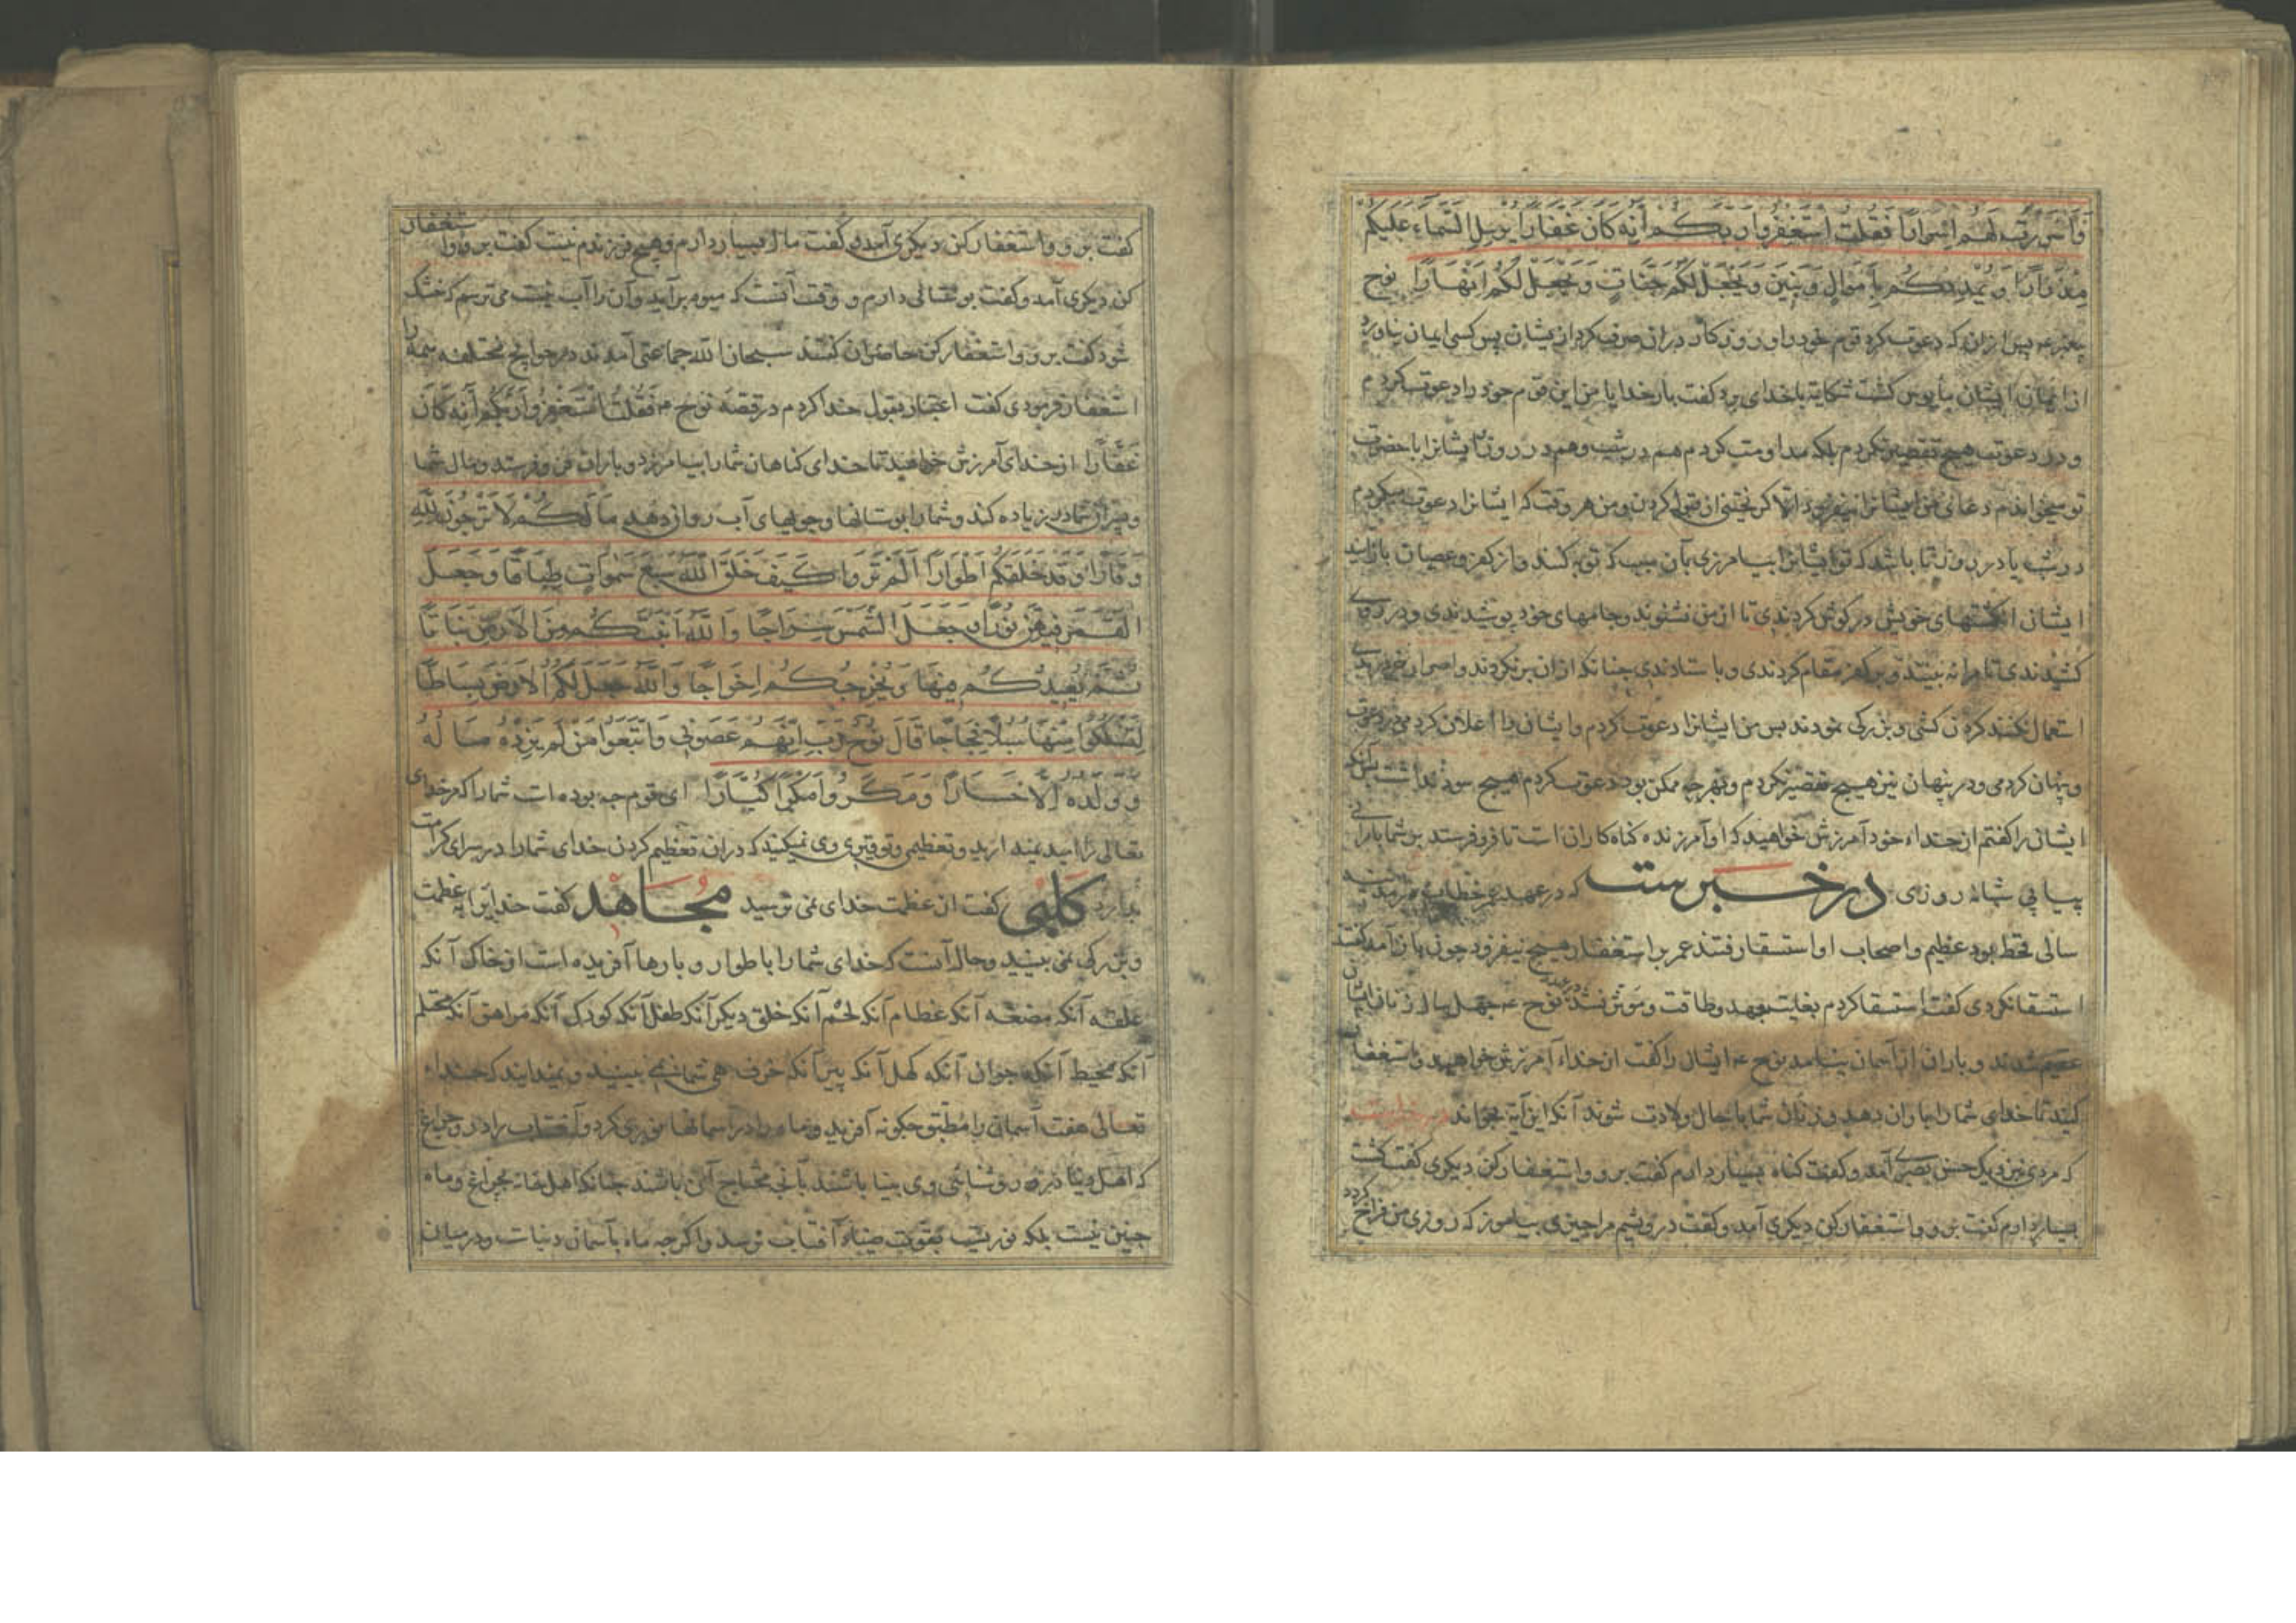 وَأَسْرَرْتُ لَهُمْ إِسْرَارًا فَقُلْتُ اسْتَغْفِرُوا رَبَّكُمْ إِنَّهُ كَانَ غَفَّارًا يُرْسِلِ السَّمَاءَ عَلَيْكُمْ
مِدْرَارًا وَيُمْدِدْكُمْ بِأَمْوَالٍ وَبَنِينَ وَيَجْعَلْ لَكُمْ جَنَّاتٍ وَيَجْعَلْ لَكُمْ أَنْهَارًا نوح
پیغمبر ع پس ازان که دعوت کرد قوم خود را و روزکار دران صرف کرد از یشان پس کسی ایمان نیاورد
از ایمان ایشان مأیوس کشت شکایة با خدای برد کفت بار خدایا من این قوم خود را دعوت کردم
و در دعوت هیچ تقصیر نکردم بلکه مداومت کردم هم در شب و هم در روز ایشانرا با حضرت
تو میخواندم دعای من ایشانرا نیفزود الا کریختن از قبول کردن و من هر وقت که ایشانرا دعوت میکردم
در شب یا در روز تا باشد که تو ایشانرا بیامرزی بآن سبب که توبه کنند و از کفر و عصیان باز ایند
ایشان انکشتهای خویش در کوش کردندی تا از من نشنوند و جامهای خود پوشیدندی و در روی
کشیدندی تا مرا نه بینند و بر کفر مقام کردندی و باستادندی چنانکه ازان برنکردند و اصرار خود
استعمال نکنند کردن کشی و بزرکی نمودند پس من ایشانرا دعوت کردم و ایشان را اعلان کردمی در دعوت
و پنهان کردمی و در پنهان نیز هیچ تقصیر نکردم و بهر چه ممکن بود دعوت کردم هیچ سود نداشت
ایشان را کفتم از خداء خود آمرزش خواهید که او آمرزنده کناه کاران است تا فرو فرستد بر شما باران
پیاپی شبانه روزی در خبرست که در عهد عمر خطاب
سالی قحط بود عظیم و اصحاب او استسقا رفتند عمر بر استغفار هیچ نیفزود چون باز آمد کفتند
استسقا نکردی کفت استسقا کردم بغایت جهد و طاقت نوح ع چهل سال زنان ایشان
عقیم شدند و باران از آسمان نیامد نوح ع ایشان را کفت از خداء آمرزش خواهید و استغفار
کنید تا خدای شما را باران دهد و زنان شما با حال ولادت شوند آنکه این آیة بخواند
که مردی نزدیک حسن بصری آمد و کفت کناه بسیار دارم کفت برو و استغفار کن دیکری کفت کشت
بسیار دارم کفت برو و استغفار کن دیکری آمد و کفت درویشم مرا چیزی بیاموز که روزی من فراخ کردد
کفت برو و استغفار کن دیکری آمد و کفت مال بسیار دارم و هیچ فرزندم نیست کفت برو و استغفار
کن دیکری آمد و کفت بوستانی دارم و وقت آنست که میوه برآید و آن را آب نیست می ترسم که خشک
شود کفت برو و استغفار کن حاضران کفتند سبحان الله جماعتی آمدند در حوایج مختلفه همه را
استغفار فرمودی کفت اعتبار بقول خدا کردم در قصه نوح ع فَقُلْتُ اسْتَغْفِرُوا رَبَّكُمْ إِنَّهُ كَانَ
غَفَّارًا از خدای آمرزش خواهید تا خدای کناهان شما را بیامرزد و باران فرو فرستد و مال شما
و پسران شما را زیاده کند و شما را بوستانها و جویهای آب روان دهد مَا لَكُمْ لَا تَرْجُونَ لِلَّهِ
وَقَارًا وَقَدْ خَلَقَكُمْ أَطْوَارًا أَلَمْ تَرَوْا كَيْفَ خَلَقَ اللَّهُ سَبْعَ سَمٰوَاتٍ طِبَاقًا وَجَعَلَ
الْقَمَرَ فِيهِنَّ نُورًا وَجَعَلَ الشَّمْسَ سِرَاجًا وَاللَّهُ أَنْبَتَكُمْ مِنَ الْأَرْضِ نَبَاتًا
ثُمَّ يُعِيدُكُمْ فِيهَا وَيُخْرِجُكُمْ إِخْرَاجًا وَاللَّهُ جَعَلَ لَكُمُ الْأَرْضَ بِسَاطًا
لِتَسْلُكُوا مِنْهَا سُبُلًا فِجَاجًا قَالَ نُوحٌ رَبِّ إِنَّهُمْ عَصَوْنِي وَاتَّبَعُوا مَنْ لَمْ يَزِدْهُ مَالُهُ
وَوَلَدُهُ إِلَّا خَسَارًا وَمَكَرُوا مَكْرًا كُبَّارًا ای قوم چه بوده است شما را که مر خدای
تعالی را امید نمیدارید و تعظیم و توقیر وی نمیکنید که دران تعظیم کردن خدای شما را در سرای کرامت
بدارد کلبی کفت از عظمت خدای نمی ترسید مجاهد کفت خدایرا عظمت
و بزرکی نمی بینید و حال آنست که خدای شما را با طوار و بارها آفریده است از خاک آنکه
علقه آنکه مضغه آنکه عظام آنکه لحم آنکه خلق دیکر آنکه طفل آنکه کودک آنکه مراهق آنکه محتلم
آنکه محیط آنکه جوان آنکه کهل آنکه پیر آنکه خرف نمی بینید و نمیدانید که خداء
تعالی هفت آسمان را مطبق چکونه آفرید و ماه را در اسمانها نوری کرد و آفتاب را در و چراغ
که اهل دنیا در روشنایی وی بینا باشند بآنچه محتاج آن باشند چنانکه اهل خانه بچراغ و ماه
چنین نیست بلکه نوریست بقوت ضیاء آفتاب نرسد و اکر چه ماه بآسمان دنیاست و در میان